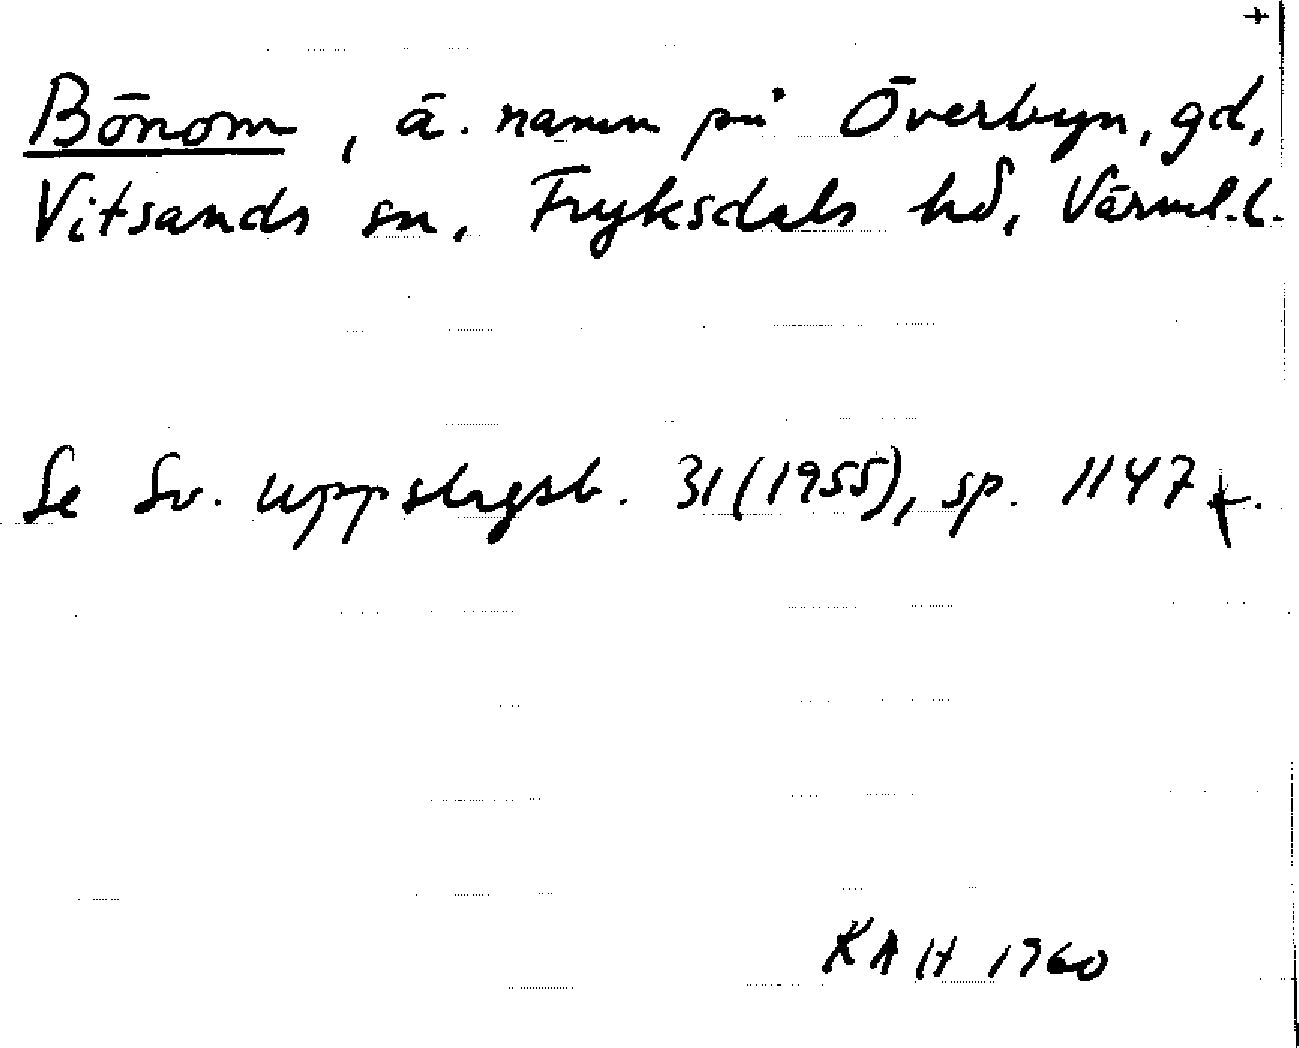 +
Bönom, ä. namn på Överbyn, gd,
Vitsands sn, Fryksdals hd, Värml. l.
Se Sv. uppslagsb. 31 (1955), sp. 1147 f.
KAH 1960